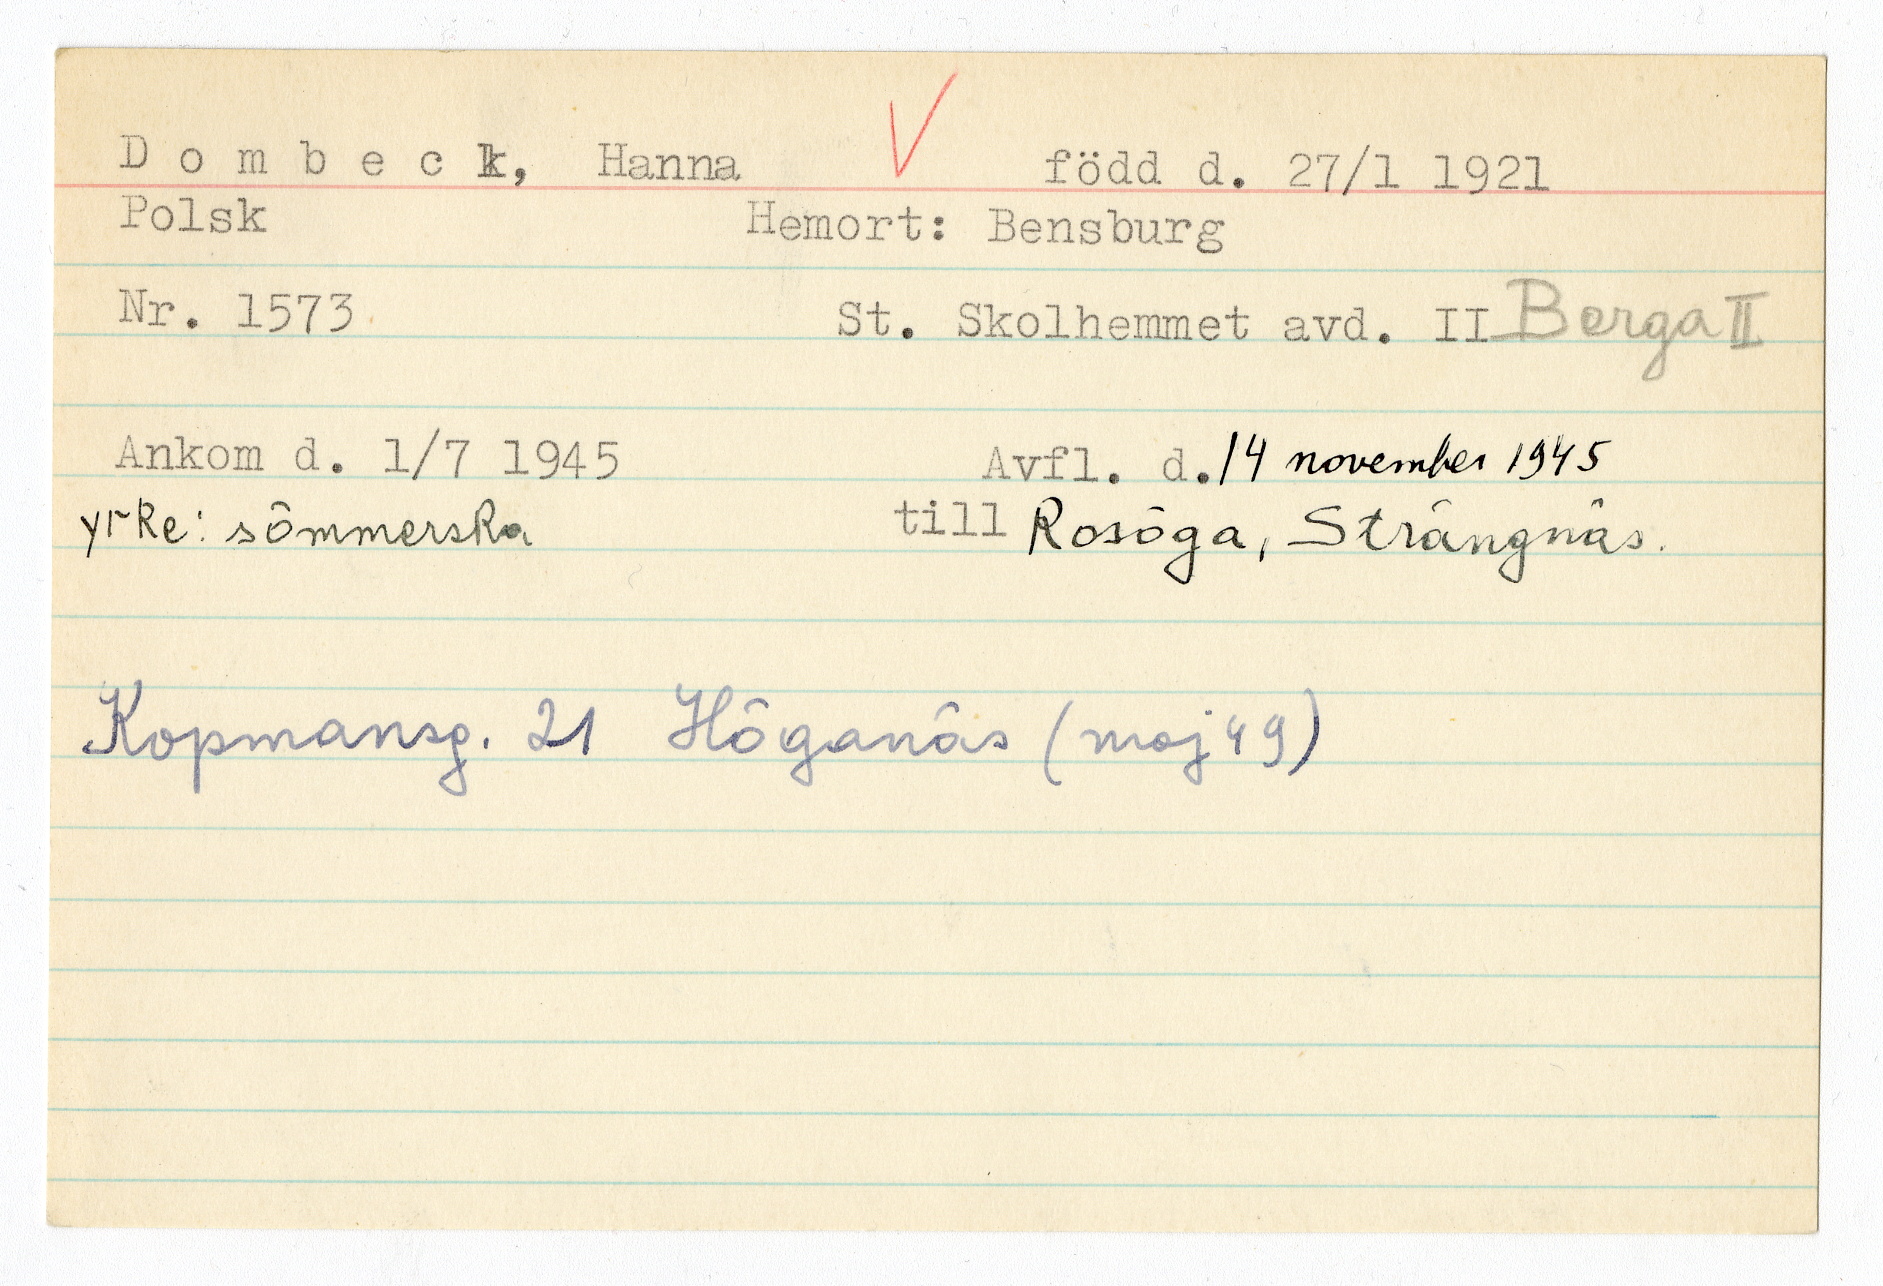 Dombeck, Hanna född d. 27/1 1921
Polsk Hemort: Bensburg
Nr. 1573 St. Skolhemmet avd. II Berga II
Ankom d. 1/7 1945 Avfl. d. 14 november 1945
yrke: sömmerska till Rosöga, Strängnäs.
Kopmansg. 21 Höganäs (maj 49)